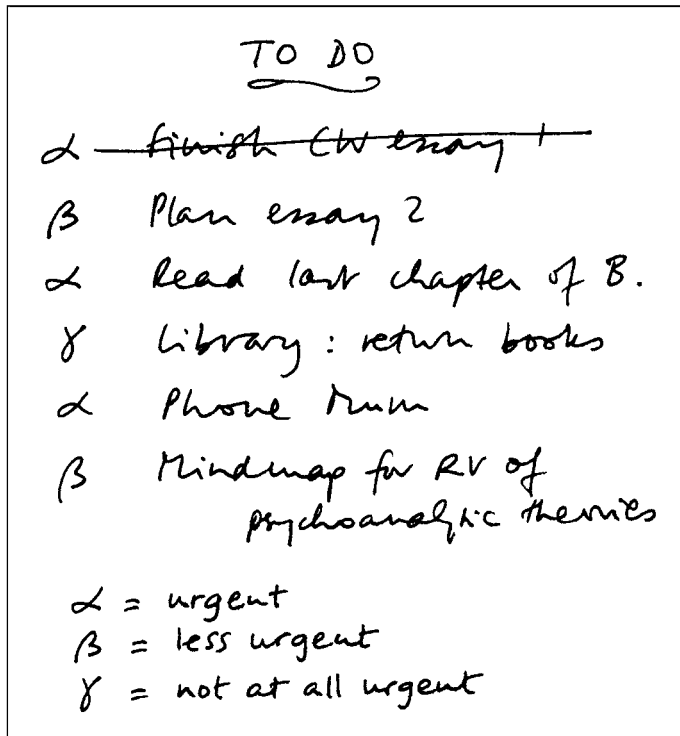 TO DO
α Finish CW essay 1
β Plan essay 2
α Read last chapter of B.
γ Library: return books
α Phone Mum
β Mindmap for RV of
psychoanalytic theories
α = urgent
β = less urgent
γ = not at all urgent